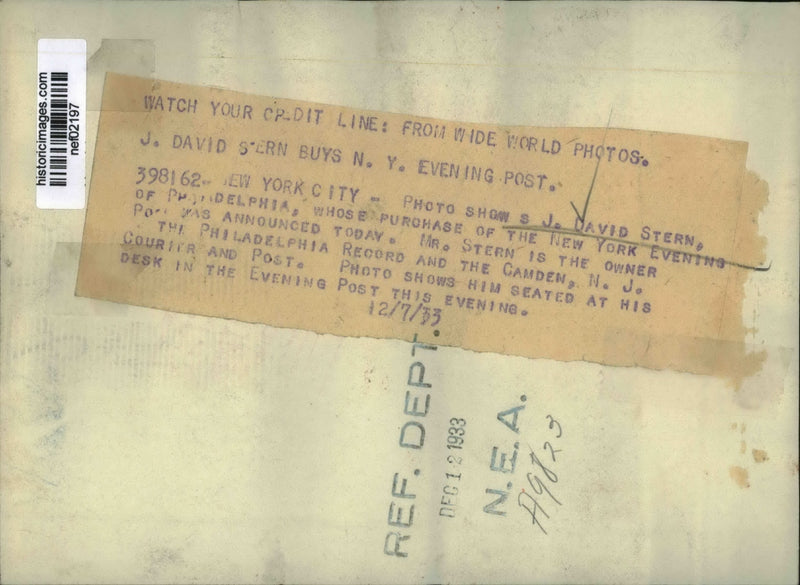 historicimages.com
nef02197
WATCH YOUR CREDIT LINE: FROM WIDE WORLD PHOTOS.
J. DAVID STERN BUYS N. Y. EVENING POST.
398162- NEW YORK CITY - PHOTO SHOWS J. DAVID STERN,
OF PHILADELPHIA, WHOSE PURCHASE OF THE NEW YORK EVENING
POST WAS ANNOUNCED TODAY. MR. STERN IS THE OWNER
THE PHILADELPHIA RECORD AND THE CAMDEN, N. J.
COURIER AND POST. PHOTO SHOWS HIM SEATED AT HIS
DESK IN THE EVENING POST THIS EVENING.
12/7/33
REF. DEPT.
DEC 12 1933
N.E.A.
A9823